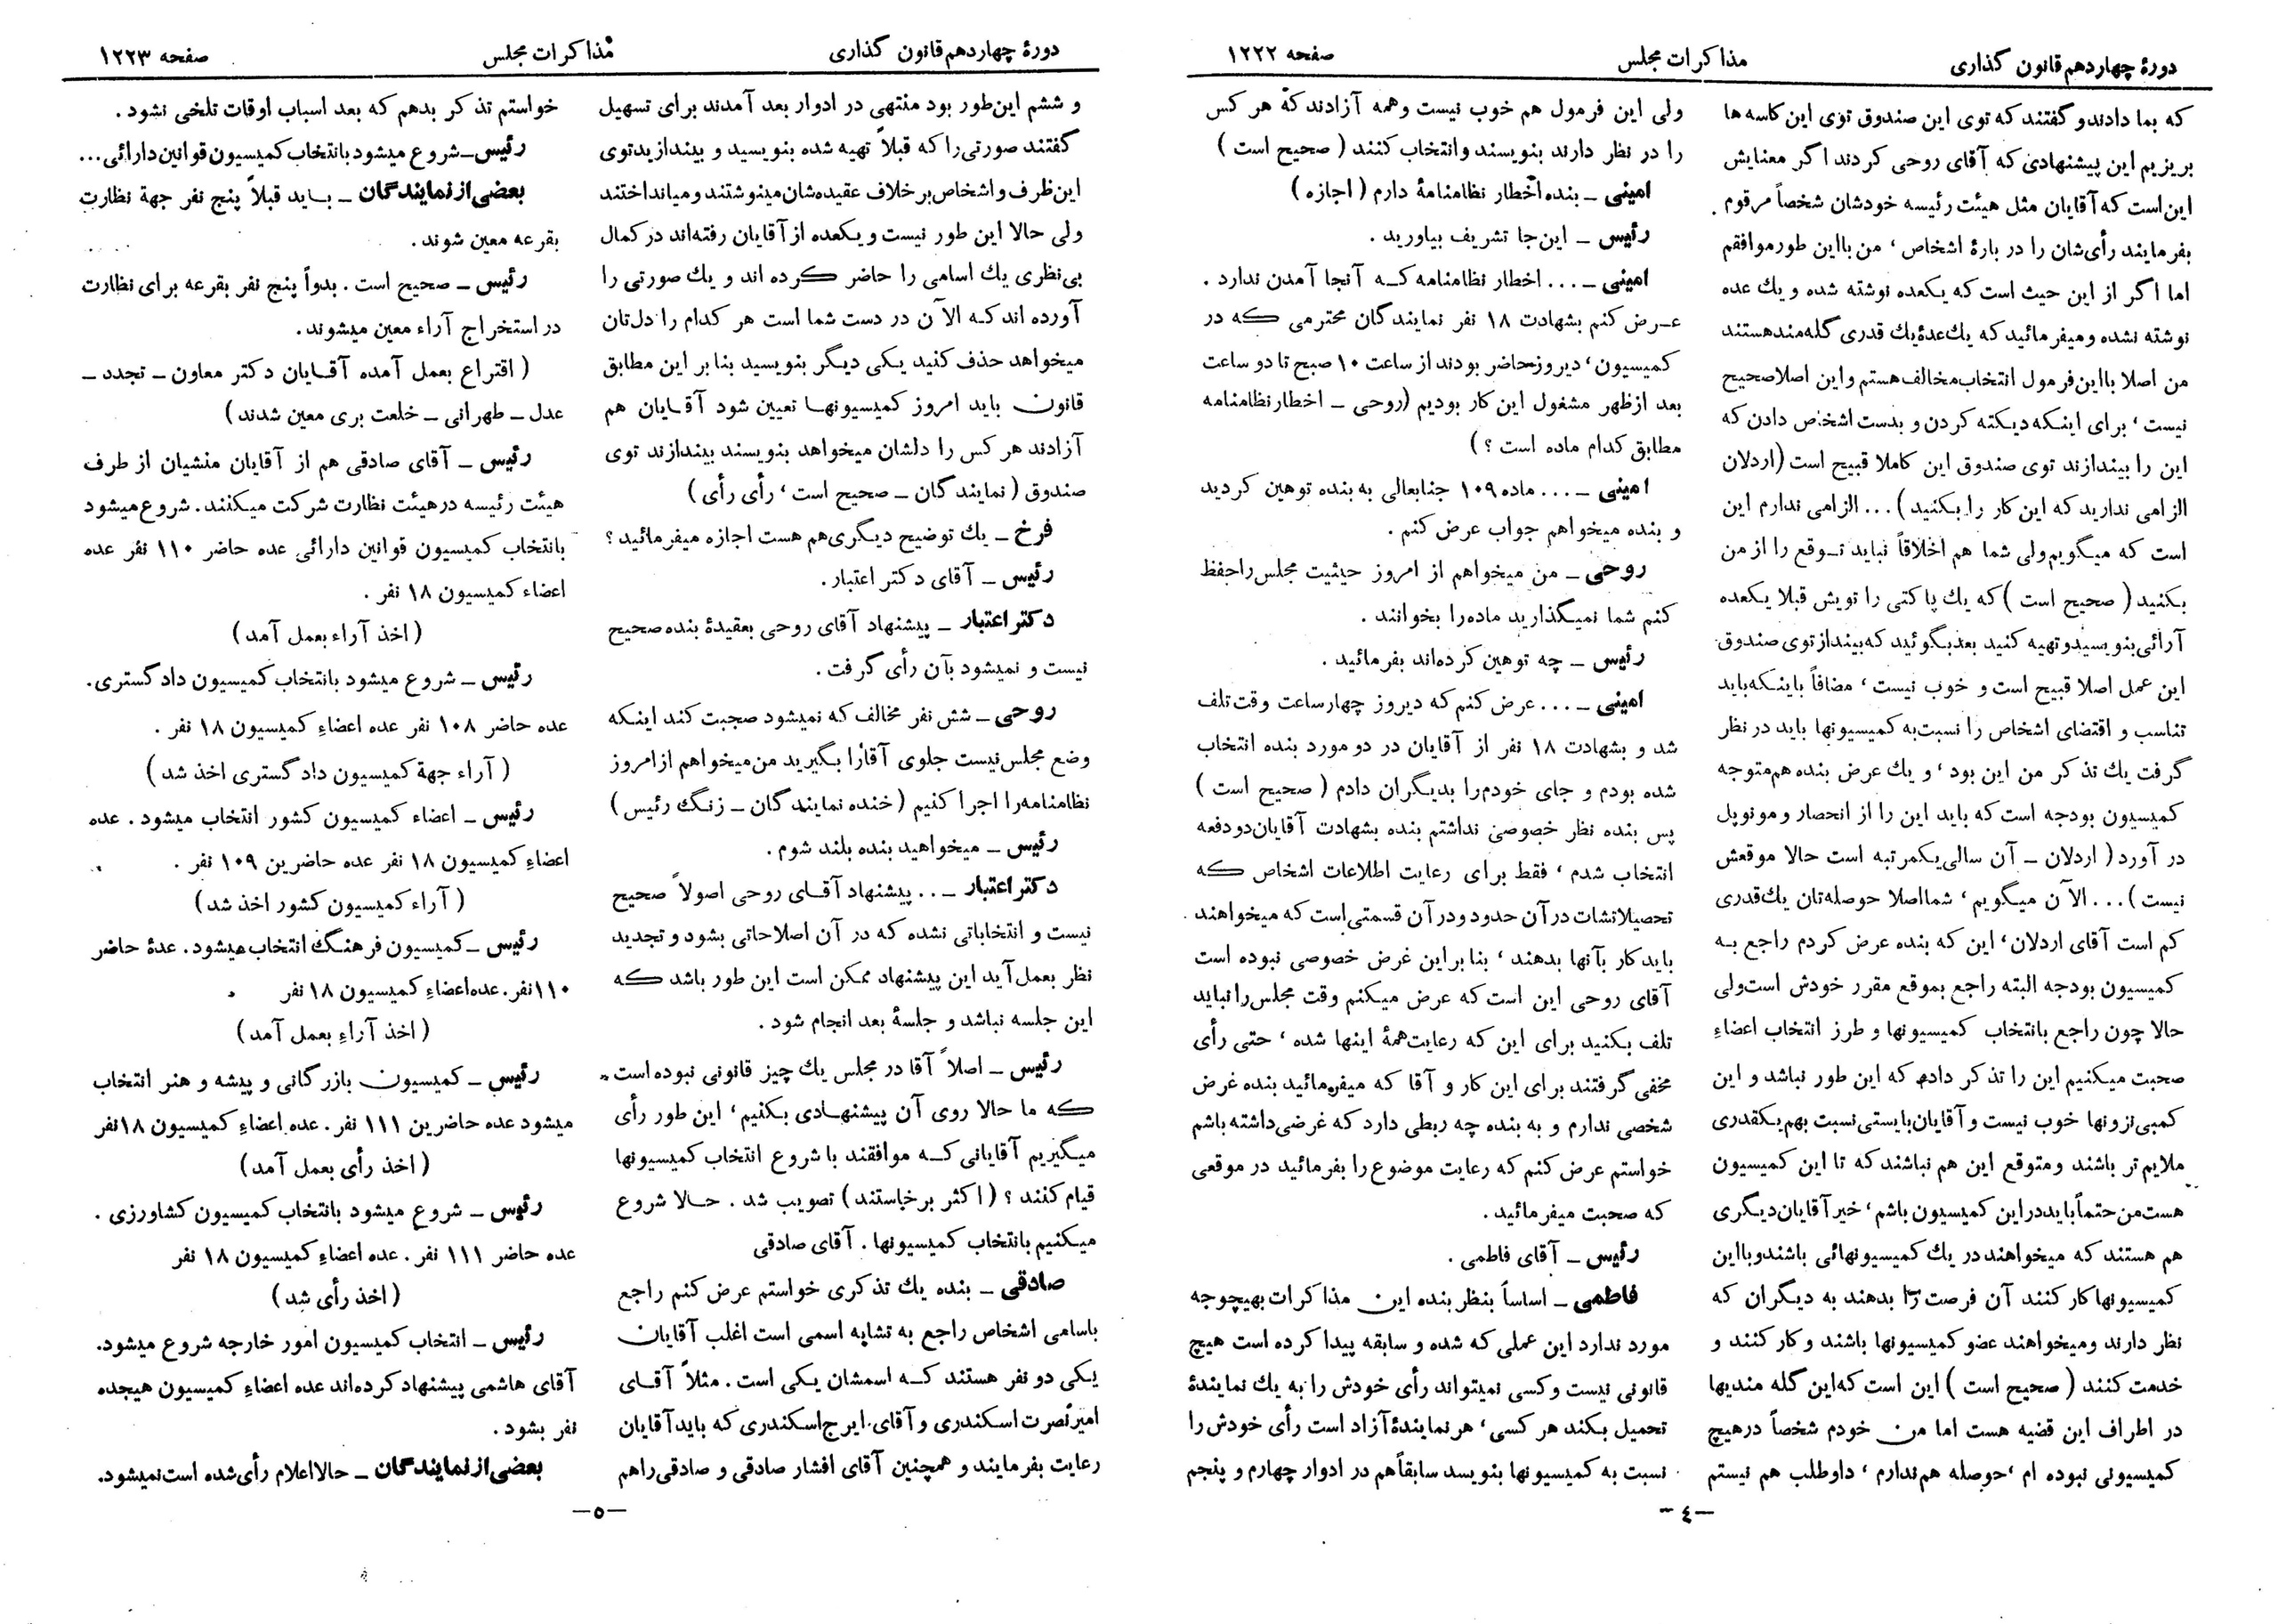 دورهٔ چهاردهم قانون گذاری
مذاکرات مجلس
صفحه ۱۲۲۲
که بما دادند و گفتند که توی این صندوق توی این کاسه ها
بریزیم این پیشنهادی که آقای روحی کردند اگر معنایش
این است که آقایان مثل هیئت رئیسه خودشان شخصاً مرقوم
بفرمایند رأی‌شان را در بارهٔ اشخاص ، من با این طور موافقم
اما اگر از این حیث است که یکعده نوشته شده و یك عده
نوشته نشده و میفرمائید که یك عدهٔ یك قدری گله‌مند هستند
من اصلا با این فرمول انتخاب مخالف هستم و این اصلا صحیح
نیست ، برای اینکه دیکته کردن و بدست اشخاص دادن که
این را بیندازند توی صندوق این کاملا قبیح است (اردلان
الزامی ندارید که این کار را بکنید) ... الزامی ندارم این
است که میگویم ولی شما هم اخلاقاً نباید توقع را از من
بکنید ( صحیح است ) که یك پاکتی را تویش قبلا یکعده
آرائی بنویسید و تهیه کنید بعد بگوئید که بینداز توی صندوق
این عمل اصلا قبیح است و خوب نیست ، مضافاً باینکه باید
تناسب و اقتضای اشخاص را نسبت به کمیسیونها باید در نظر
گرفت یك تذکر من این بود ، و یك عرض بنده هم متوجه
کمیسیون بودجه است که باید این را از انحصار و مونوپل
در آورد ( اردلان ـ آن سالی یکمرتبه است حالا موقعش
نیست ) ... الآن میگویم ، شما اصلا حوصله‌تان یك قدری
کم است آقای اردلان ، این که بنده عرض کردم راجع بـه
کمیسیون بودجه البته راجع بموقع مقرر خودش است ولی
حالا چون راجع بانتخاب کمیسیونها و طرز انتخاب اعضاءِ
صحبت میکنیم این را تذکر دادم که این طور نباشد و این
کمبی‌نزونها خوب نیست و آقایان بایستی نسبت بهم یکقدری
ملایم تر باشند و متوقع این هم نباشند که تا این کمیسیون
هست من حتماً باید در این کمیسیون باشم ، خیر آقایان دیگری
هم هستند که میخواهند در یك کمیسیونهائی باشند و با این
کمیسیونها کار کنند آن فرصت را بدهند به دیگران که
نظر دارند و میخواهند عضو کمیسیونها باشند و کار کنند و
خدمت کنند ( صحیح است ) این است که این گله مندیها
در اطراف این قضیه هست اما من خودم شخصاً در هیچ
کمیسیونی نبوده ام ، حوصله هم ندارم ، داوطلب هم نیستم
ولی این فرمول هم خوب نیست و همه آزادند که هر کس
را در نظر دارند بنویسند و انتخاب کنند ( صحیح است )
امینی ـ بنده اخطار نظامنامهٔ دارم ( اجازه )
رئیس ـ این‌جا تشریف بیاورید .
امینی ـ ... اخطار نظامنامه کـه آنجا آمدن ندارد .
عـرض کنم بشهادت ۱۸ نفر نمایندگان محترمی که در
کمیسیون ، دیروز حاضر بودند از ساعت ۱۰ صبح تا دو ساعت
بعد از ظهر مشغول این کار بودیم (روحی ـ اخطار نظامنامه
مطابق کدام ماده است ؟ )
امینی ـ ... ماده ۱۰۹ جنابعالی به بنده توهین کردید
و بنده میخواهم جواب عرض کنم .
روحی ـ من میخواهم از امروز حیثیت مجلس را حفظ
کنم شما نمیگذارید ماده را بخوانند .
رئیس ـ چه توهین کرده‌اند بفرمائید .
امینی ـ ... عرض کنم که دیروز چهار ساعت وقت تلف
شد و بشهادت ۱۸ نفر از آقایان در دو مورد بنده انتخاب
شده بودم و جای خودم را بدیگران دادم ( صحیح است )
پس بنده نظر خصوصی نداشتم بنده بشهادت آقایان دو دفعه
انتخاب شدم ، فقط برای رعایت اطلاعات اشخاص که
تحصیلاتشات در آن حدود و در آن قسمتی است که میخواهند
باید کار بآنها بدهند ، بنا بر این غرض خصوصی نبوده است
آقای روحی این است که عرض میکنم وقت مجلس را نباید
تلف بکنید برای این که رعایت همهٔ اینها شده ، حتی رأی
مخفی گرفتند برای این کار و آقا که میفرمائید بنده غرض
شخصی ندارم و به بنده چه ربطی دارد که غرضی داشته باشم
خواستم عرض کنم که رعایت موضوع را بفرمائید در موقعی
که صحبت میفرمائید .
رئیس ـ آقای فاطمی .
فاطمی ـ اساساً بنظر بنده این مذاکرات بهیچوجه
مورد ندارد این عملی که شده و سابقه پیدا کرده است هیچ
قانونی نیست و کسی نمیتواند رأی خودش را به یك نمایندهٔ
تحمیل بکند هر کسی ، هر نمایندهٔ آزاد است رأی خودش را
نسبت به کمیسیونها بنویسد سابقاً هم در ادوار چهارم و پنجم
ـ٤ـ
دورهٔ چهاردهم قانون گذاری
مذاکرات مجلس
صفحه ۱۲۲۳
و ششم این‌طور بود منتهی در ادوار بعد آمدند برای تسهیل
گفتند صورتی را که قبلاً تهیه شده بنویسید و بیندازید توی
این ظرف و اشخاص بر خلاف عقیده‌شان مینوشتند و میانداختند
ولی حالا این طور نیست و یکعده از آقایان رفته‌اند در کمال
بی‌نظری یك اسامی را حاضر کرده اند و یك صورتی را
آورده اند کـه الآن در دست شما است هر کدام را دل‌تان
میخواهد حذف کنید یکی دیگر بنویسید بنا بر این مطابق
قانون باید امروز کمیسیونهـا تعیین شود آقـایان هم
آزادند هر کس را دلشان میخواهد بنویسند بیندازند توی
صندوق ( نمایندگان ـ صحیح است ، رأی رأی )
فرخ ـ یك توضیح دیگری هم هست اجازه میفرمائید ؟
رئیس ـ آقای دکتر اعتبار .
دکتر اعتبار ـ پیشنهاد آقای روحی بعقیدهٔ بنده صحیح
نیست و نمیشود بآن رأی گرفت .
روحی ـ شش نفر مخالف که نمیشود صحبت کند اینکه
وضع مجلس نیست جلوی آقا را بگیرید من میخواهم از امروز
نظامنامه را اجرا کنیم (خنده نمایندگان ـ زنگ رئیس )
رئیس ـ میخواهید بنده بلند شوم .
دکتر اعتبار ـ .. پیشنهاد آقـای روحی اصولاً صحیح
نیست و انتخاباتی نشده که در آن اصلاحاتی بشود و تجدید
نظر بعمل آید این پیشنهاد ممکن است این طور باشد که
این جلسه نباشد و جلسهٔ بعد انجام شود .
رئیس ـ اصلاً آقا در مجلس یك چیز قانونی نبوده است
که ما حالا روی آن پیشنهـادی بکنیم ، این طور رأی
میگیریم آقایانی کـه موافقند با شروع انتخاب کمیسیونها
قیام کنند ؟ ( اکثر برخاستند ) تصویب شد . حـالا شروع
میکنیم بانتخاب کمیسیونها . آقای صادقی
صادقی ـ بنده یك تذکری خواستم عرض کنم راجع
باسامی اشخاص راجع به تشابه اسمی است اغلب آقایان
یکی دو نفر هستند کـه اسمشان یکی است . مثلاً آقـای
امیرنصرت اسکندری و آقای ایرج اسکندری که باید آقایان
رعایت بفرمایند و همچنین آقای افشار صادقی و صادقی را هم
خواستم تذکر بدهم که بعد اسباب اوقات تلخی نشود .
رئیس ـ شروع میشود بانتخاب کمیسیون قوانین دارائی ...
بعضی از نمایندگان ـ بـاید قبلاً پنج نفر جهة نظارت
بقرعه معین شوند .
رئیس ـ صحیح است . بدواً پنج نفر بقرعه برای نظارت
در استخراج آراء معین میشوند .
( اقتراع بعمل آمده آقـایان دکتر معاون ـ تجدد ـ
عدل ـ طهرانی ـ خلعت بری معین شدند )
رئیس ـ آقای صادقی هم از آقایان منشیان از طرف
هیئت رئیسه در هیئت نظارت شرکت میکنند . شروع میشود
بانتخاب کمیسیون قوانین دارائی عده حاضر ۱۱۰ نفر عده
اعضاء کمیسیون ۱۸ نفر .
( اخذ آراء بعمل آمد )
رئیس ـ شروع میشود بانتخاب کمیسیون دادگستری .
عده حاضر ۱۰۸ نفر عده اعضاءِ کمیسیون ۱۸ نفر .
( آراء جهة کمیسیون دادگستری اخذ شد )
رئیس ـ اعضاء کمیسیون کشور انتخاب میشود . عده
اعضاءِ کمیسیون ۱۸ نفر عده حاضرین ۱۰۹ نفر .
( آراء کمیسیون کشور اخذ شد )
رئیس ـ کمیسیون فرهنگ انتخاب میشود . عدهٔ حاضر
۱۱۰ نفر . عده اعضاءِ کمیسیون ۱۸ نفر
( اخذ آراءِ بعمل آمد )
رئیس ـ کمیسیون بازرگانی و پیشه و هنر انتخاب
میشود عده حاضرین ۱۱۱ نفر . عده اعضاءِ کمیسیون ۱۸ نفر
( اخذ رأی بعمل آمد )
رئیس ـ شروع میشود بانتخاب کمیسیون کشاورزی .
عده حاضر ۱۱۱ نفر . عده اعضاءِ کمیسیون ۱۸ نفر
( اخذ رأی شد )
رئیس ـ انتخاب کمیسیون امور خارجه شروع میشود .
آقای هاشمی پیشنهاد کرده‌اند عده اعضاءِ کمیسیون هیجده
نفر بشود .
بعضی از نمایندگان ـ حالا اعلام رأی شده است نمیشود .
ـ٥ـ